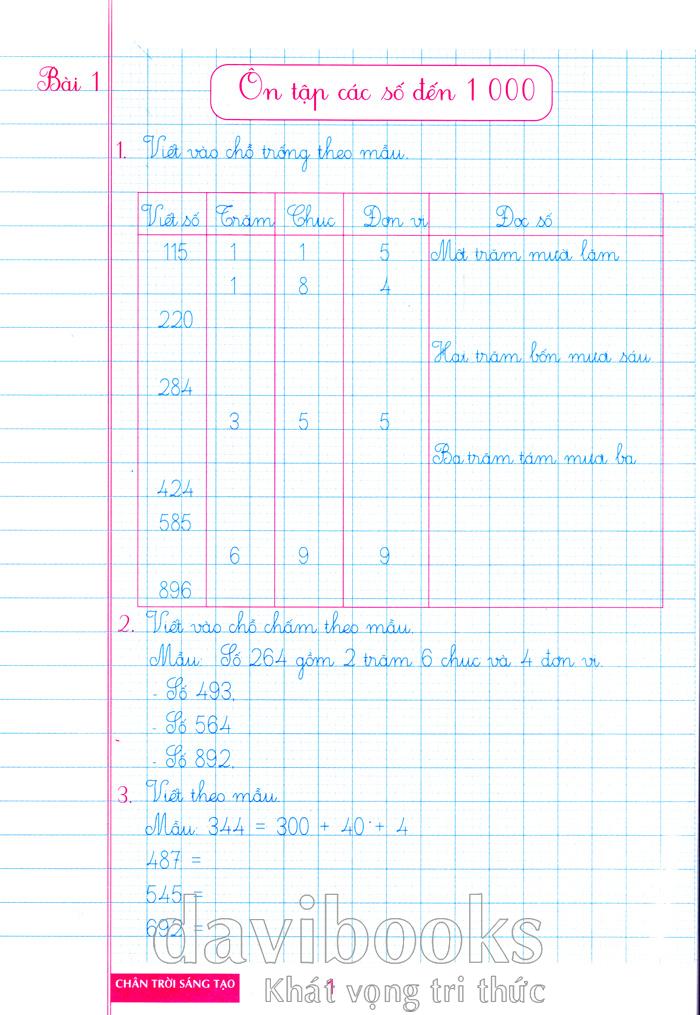 Bài 1
Ôn tập các số đến 1 000
1. Viết vào chỗ trống theo mẫu.
Viết số Trăm Chục Đơn vị Đọc số
115 1 1 5 Một trăm mười lăm
1 8 4
220
Hai trăm bốn mươi sáu
284
3 5 5
Ba trăm tám mươi ba
424
585
6 9 9
896
2. Viết vào chỗ chấm theo mẫu.
Mẫu: Số 264 gồm 2 trăm 6 chục và 4 đơn vị.
- Số 493,
- Số 564
- Số 892,
3. Viết theo mẫu.
Mẫu: 344 = 300 + 40 + 4
487 =
545 =
692 =
davibooks
Khát vọng tri thức
CHÂN TRỜI SÁNG TẠO
1